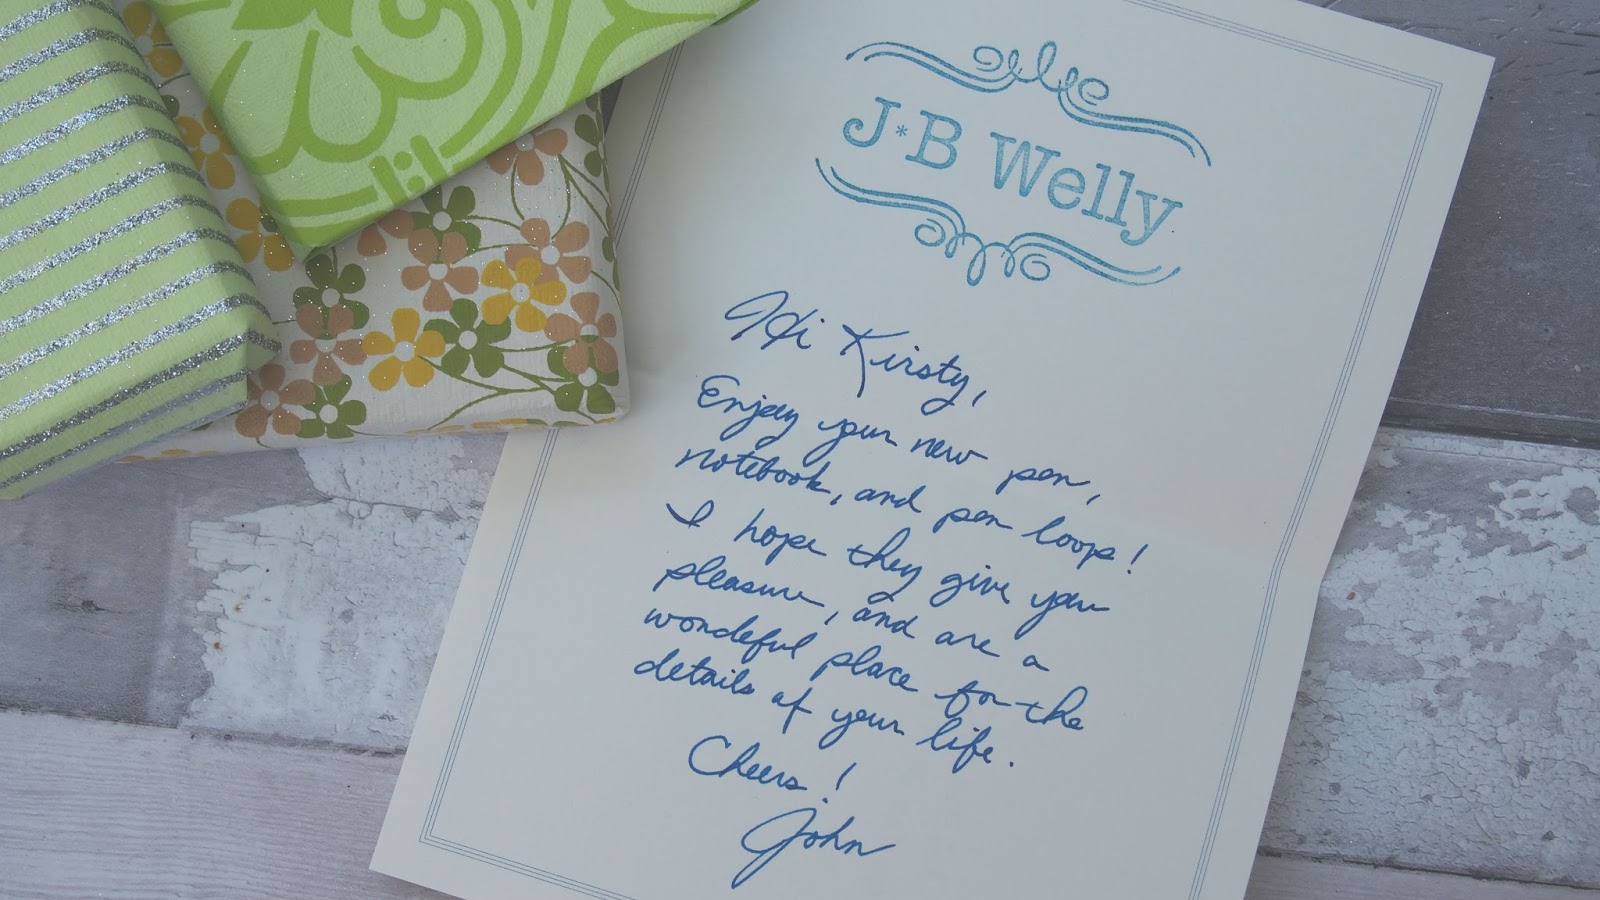 J*B Welly
Hi Kirsty,
Enjoy your new pen,
notebook, and pen loops!
I hope they give you
pleasure, and are a
wondeful place for the
details of your life.
Cheers!
John